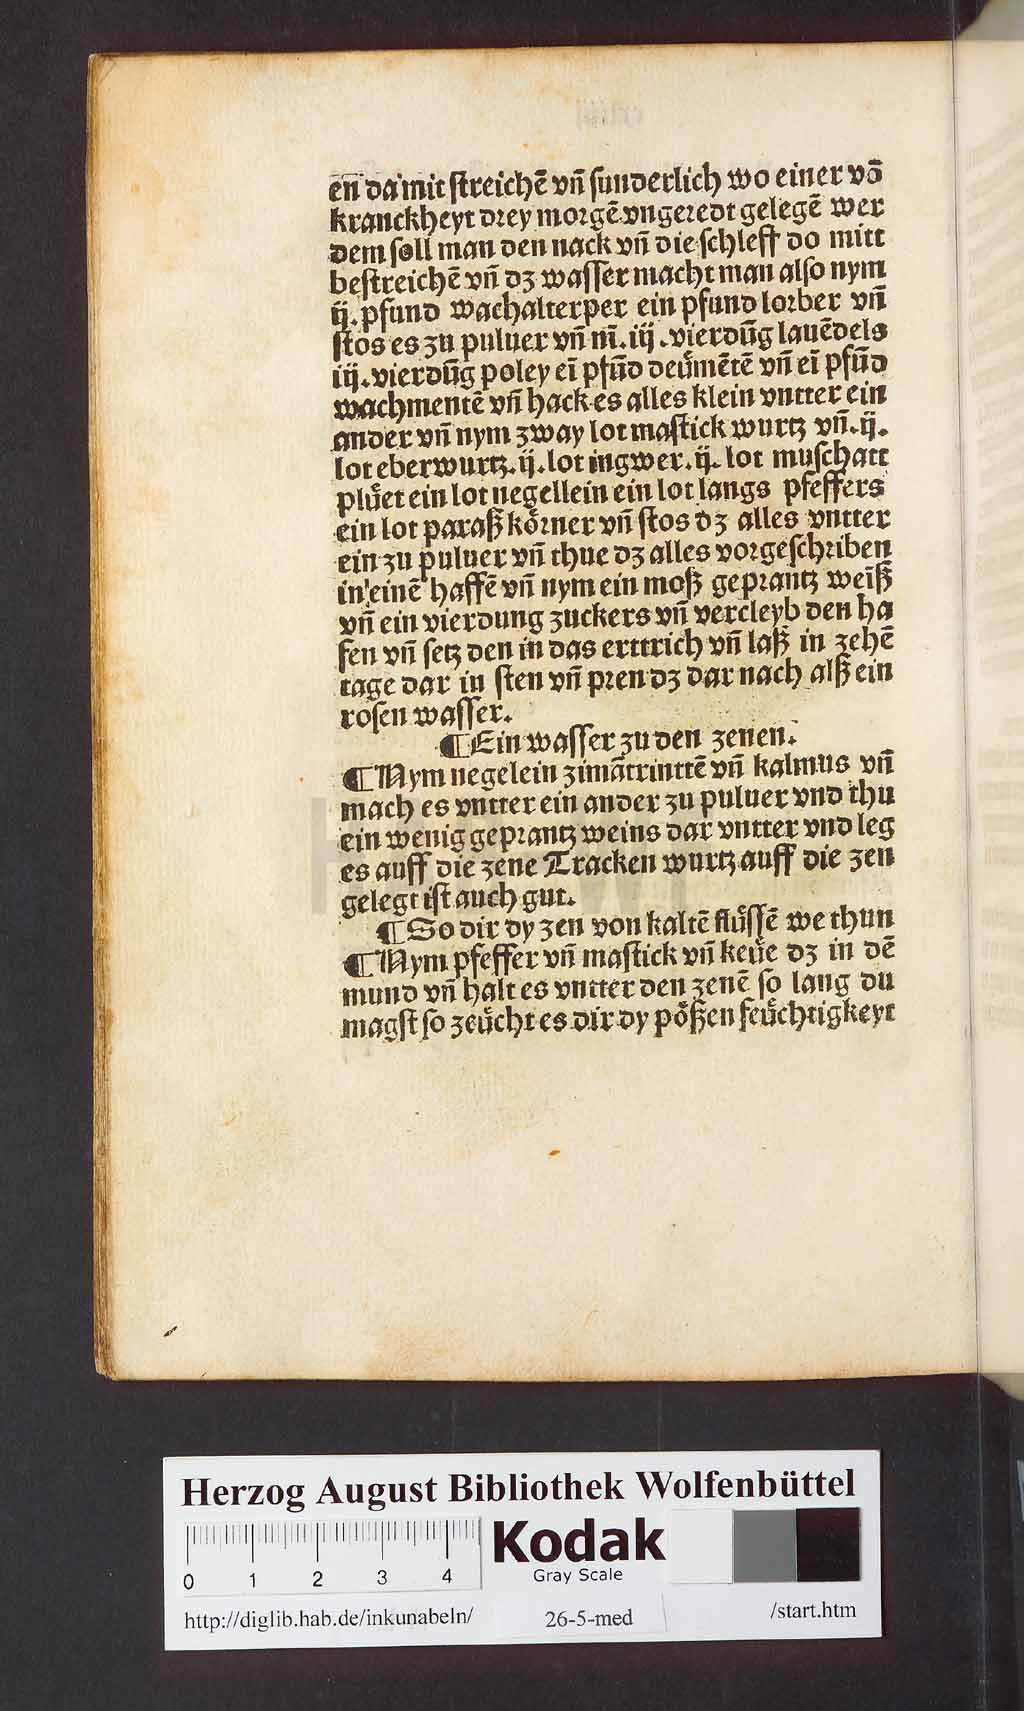 en da mit streichē vn̄ sunderlich wo einer vō
kranckheyt drey morgē vngeredt gelegē wer
dem soll man den nack vn̄ die schleff do mitt
bestreichē vn̄ dz wasser macht man also nym
ij. pfund wachalterper ein pfund lorber vn̄
stos es zu puluer vn̄ nī. iij. vierdūg lauēdels
iij. vierdūg poley eī pfūd deümētē vn̄ eī pfūd
wachmentē vn̄ hack es alles klein vntter ein
ander vn̄ nym zway lot mastick wurtz vn̄. ij.
lot eberwurtz. ij. lot ingwer. ij. lot muschatt
plüet ein lot negellein ein lot langs pfeffers
ein lot paraß körner vn̄ stos dz alles vntter
ein zu puluer vn̄ thue dz alles vorgeschriben
in einē haffē vn̄ nym ein moß geprantz weīß
vn̄ ein vierdung zuckers vn̄ vercleyb den ha
fen vn̄ setz den in das erttrich vn̄ laß in zehē
tage dar in sten vn̄ pren dz dar nach alß ein
rosen wasser.
¶ Ein wasser zu den zenen.
¶ Nym negelein zimātrinttē vn̄ kalmus vn̄
mach es vntter ein ander zu puluer vnd thu
ein wenig geprantz weins dar vntter vnd leg
es auff die zene Tracken wurtz auff die zen
gelegt ist auch gut.
¶ So dir dy zen von kaltē flüssē we thun
¶ Nym pfeffer vn̄ mastick vn̄ keüe dz in dē
mund vn̄ halt es vntter den zenē so lang du
magst so zeücht es dir dy pößen feüchtigkeyt
Herzog August Bibliothek Wolfenbüttel
0 1 2 3 4
Kodak
Gray Scale
http://diglib.hab.de/inkunabeln/
26-5-med
/start.htm